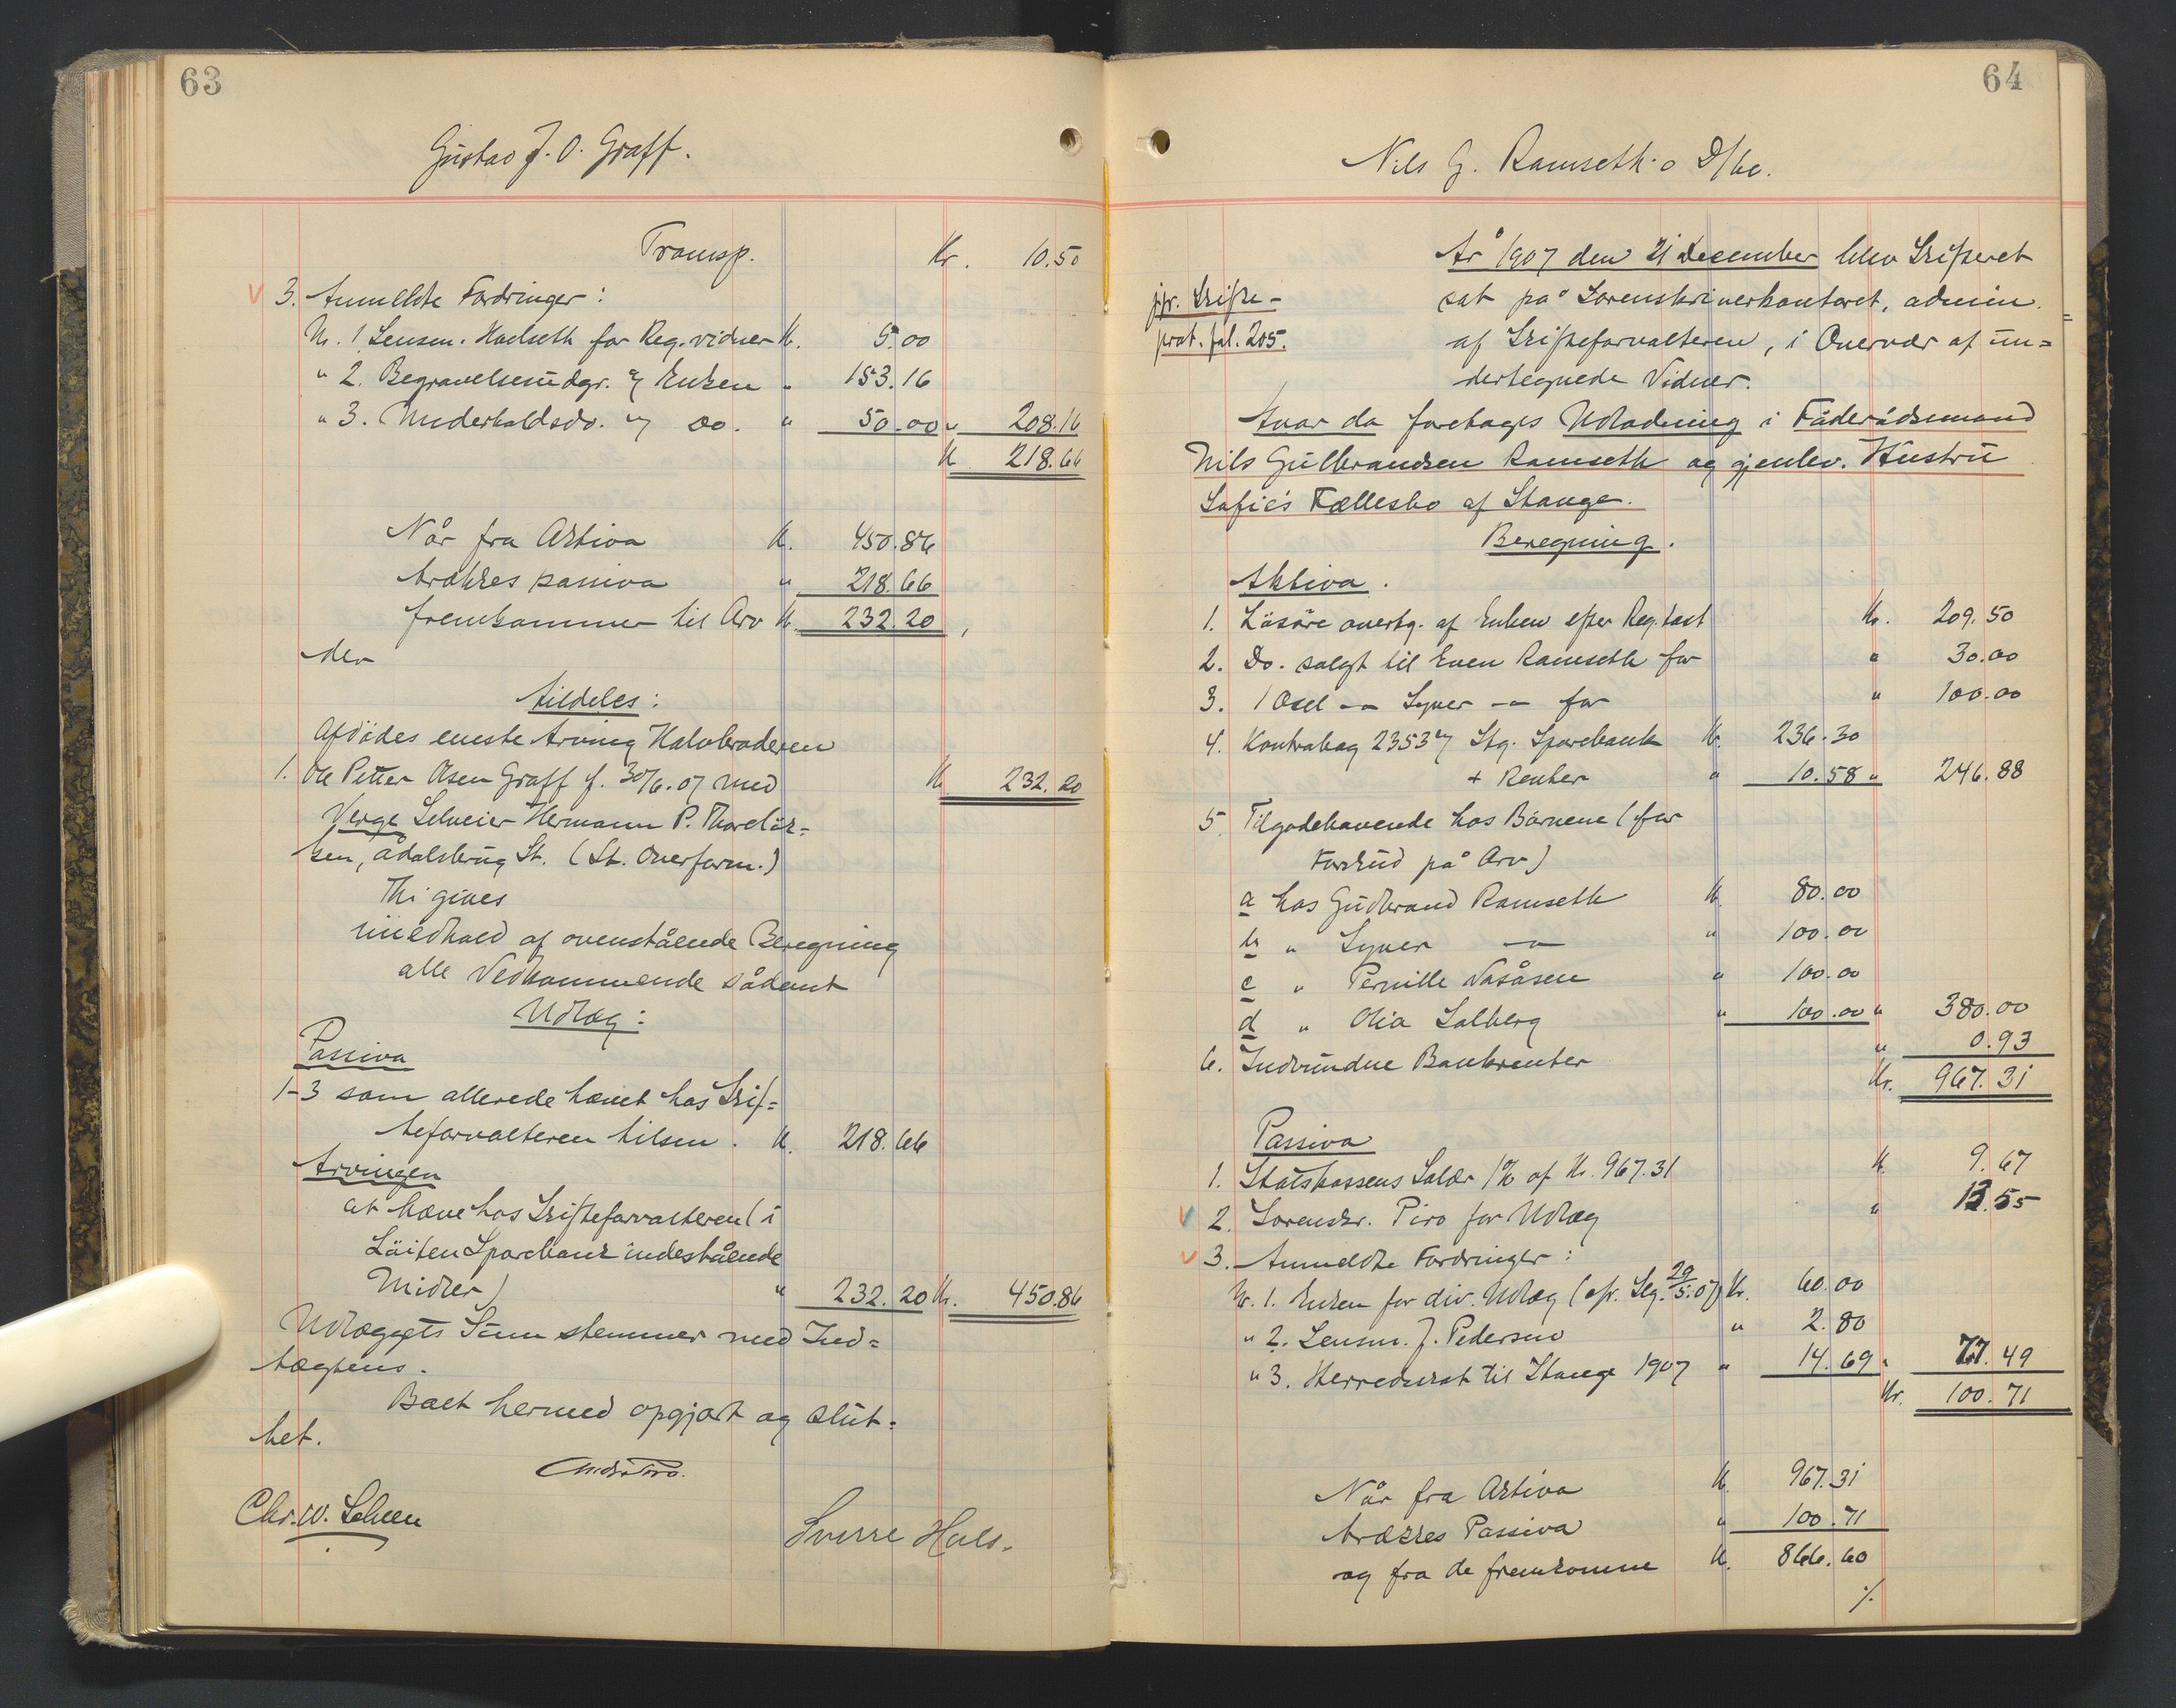 63
Gustav J. O. Graff.
Transp. Kr. 10.50
3. Anmeldte Fordringer:
Nr. 1 Lensm. Havlseth for Reg.vidner Kr. 5.00
" 2. Begravelsesudgr. Enken " 153.16
" 3. Underholdsdo. Do. " 50.00 " 208.16
Kr 218.66
Når fra Aktiva Kr. 450.86
trækkes passiva " 218.66
fremkommer til Arv Kr. 232.20,
der
tildeles:
Afdødes eneste Arving Halvbroderen
1. Ole Petter Olsen Graff f. 30/6.07 med Kr 232.20
Verge Selveier Hermann P.
sen, Ådalsbrug St. (St. Overform.)
Thi gives
i medhold af ovenstående Beregning
alle Vedkommende sådant
Udlæg:
Passiva
1-3 som allerede hævet hos Skif=
teforvalteren tilsm. Kr. 218.66
Arvingen
at hæve hos Skifteforvalteren (i
Løiten Sparebank indestående
Midler) " 232.20 Kr. 450.86
Udlæggets Sum stemmer med Ind=
tægtens.
Boet hermed opgjort og slut=
tet.
Chr. W. Scheen
Sverre Hals.
64
Nils G. Ramseth's D/bo.
År 1907 den 21 December blev Skifteret
jfr. Skifte-
prot. fol. 205.
sat på Sorenskriverkontoret, admin.
af Skifteforvalteren, i Overvær af un=
dertegnede Vidner.
Hvor da foretoges Udlodning i Føderådsmand
Nils Gulbrandsen Ramseth og gjenlev. Hustru
Sofie's Fællesbo af Stange.
Beregning.
Aktiva.
1. Løsøre overtg. af Enken efter Reg.taxt Kr. 209.50
2. Do. solgt til Even Ramseth for " 30.00
3. 1 Osel — Syver — for " 100.00
4. Kontrabog 2353 Stg. Sparebank Kr. 236.30
+ Renter " 10.58 " 246.88
5. Tilgodehavende hos Børnene (for
Forskud på Arv)
a hos Gudbrand Ramseth Kr. 80.00
b " Syver — " 100.00
c " Pernille Vasåsen " 100.00
d " Olia Solberg " 100.00 " 380.00
6. Indvundne Bankrenter " 0.93
Kr. 967.31
Passiva
1. Statskassens Salær 1% af Kr. 967.31 Kr. 9.67
2. Sorenskr. Piro for Udlæg " 13.55
3. Anmeldte Fordringer:
Nr. 1. Enken for div. Udlæg (jfr. Slg. 29/5.07) Kr. 60.00
" 2. Lensm. J. Pedersen " 2.80
" 3. Herredsskat til Stange 1907 " 14.69 " 77.49
Kr. 100.71
Når fra Aktiva Kr. 967.31
trækkes Passiva " 100.71
og fra de fremkomne Kr. 866.60
./.